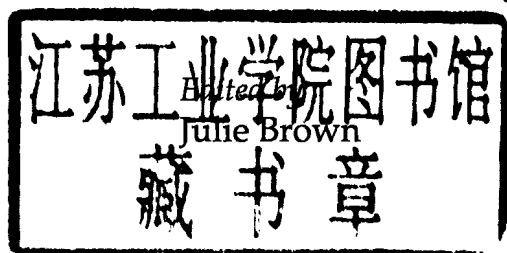 江苏工业学院图书馆
Edited by
Julie Brown
藏书章